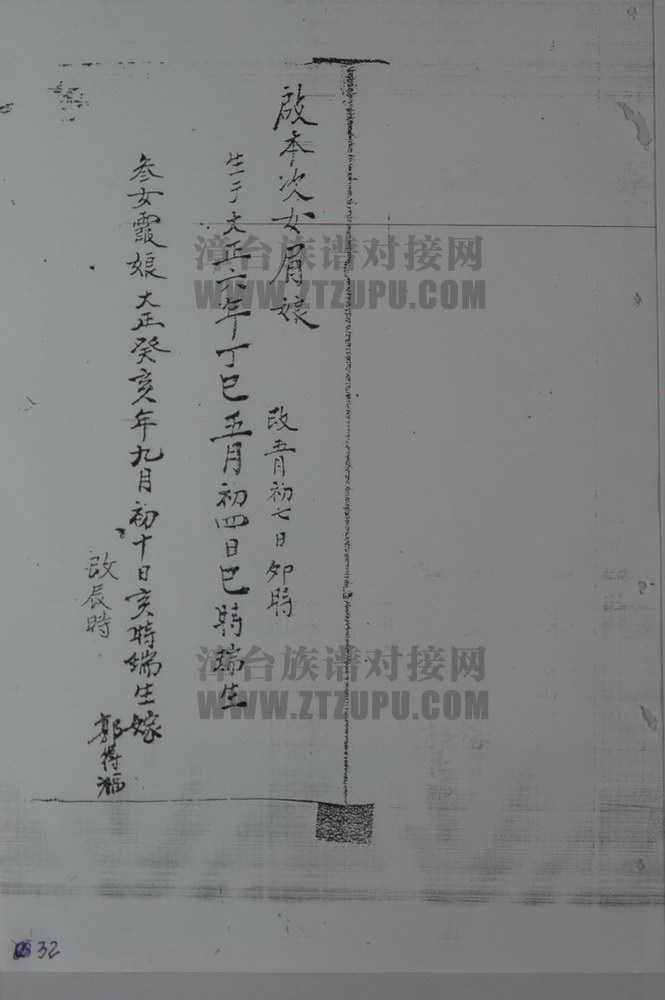 啟本次女屑娘
改五月初七日夘時
生于大正六年丁巳五月初四日巳時瑞生
叁女霞娘大正癸亥年九月初十日亥時瑞生嫁
郭得福
改辰時
漳台族谱对接网
WWW.ZTZUPU.COM
漳台族谱对接网
WWW.ZTZUPU.COM
32